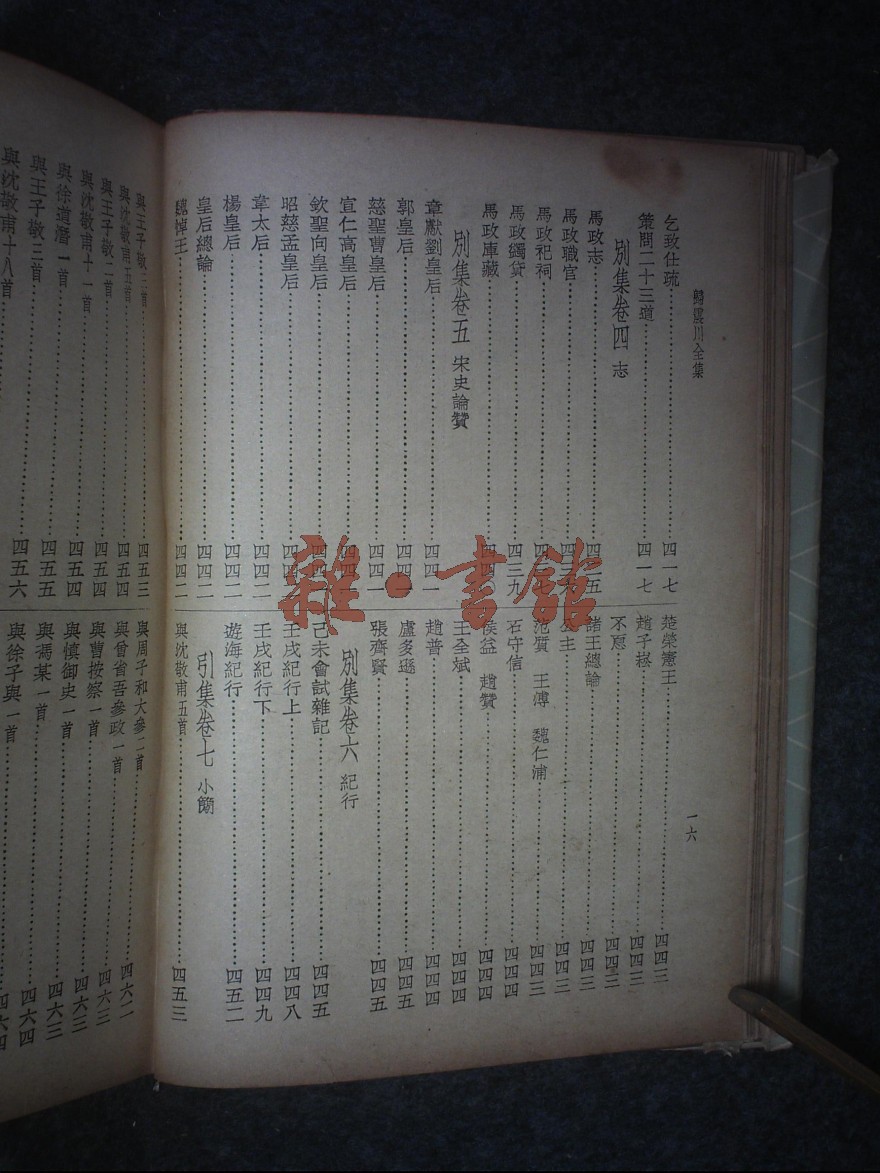 歸震川全集
一六
乞致仕疏 四一七
策問二十三道 四一七
別集卷四 志
馬政志 四三五
馬政職官
馬政祀祠
馬政蠲貸 四三九
馬政庫藏
別集卷五 宋史論贊
章獻劉皇后 四四一
郭皇后 四四一
慈聖曹皇后 四四一
宣仁高皇后
欽聖向皇后
昭慈孟皇后
韋太后 四四二
楊皇后 四四二
皇后總論 四四二
魏悼王 四四二
楚榮憲王 四四三
趙子崧 四四三
不惪 四四三
諸王總論 四四三
公主 四四三
范質 王溥 魏仁浦 四四三
石守信 四四四
侯益 趙贊 四四四
王全斌 四四四
趙普 四四四
盧多遜 四四五
張齊賢 四四五
別集卷六 紀行
己未會試雜記 四四五
壬戌紀行上 四四八
壬戌紀行下 四四九
遊海紀行 四五二
引集卷七 小簡
與沈敬甫五首 四五三
與王子敬三首 四五三
與沈敬甫五首 四五四
與王子敬二首 四五四
與沈敬甫十一首 四五四
與徐道潛一首 四五四
與王子敬三首 四五五
與沈敬甫十八首 四五六
與周子和大參二首 四六二
與曾省吾參政一首 四六三
與曹按察一首 四六三
與慎御史一首 四六三
與馮某一首 四六四
與徐子與一首 四六四
雜·書館